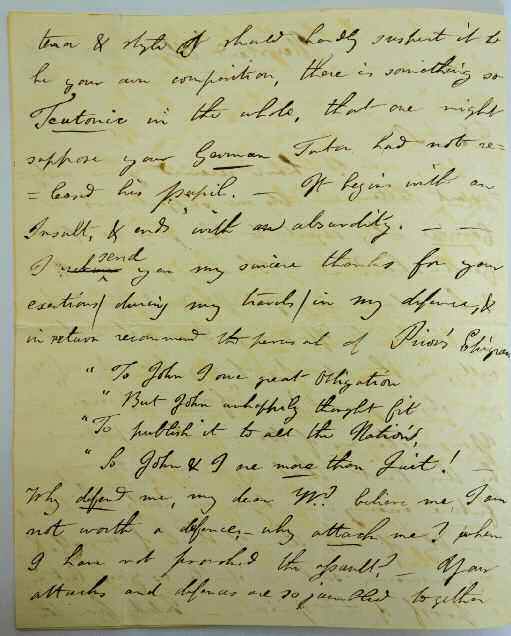 tenor & style I should hardly suspect it to
be your own composition, there is something so
Teutonic in the whole, that one might
suppose your German Tutor had not re=
=leased his pupil. — It begins with an
Insult, & ends with an absurdity. — —
I send you my sincere thanks for your
exertions / during my travels / in my defence, &
in return recommend the perusal of Prior's Epigram
" To John I owe great Obligation
" But John unhappily thought fit
" To publish it to all the Nation,
" So John & I are more than Quit! —
Why defend me, my dear Wr. believe me I am
not worth a defence, – why attack me? when
I have not provoked the assault? — Your
attacks and defences are so jumbled together